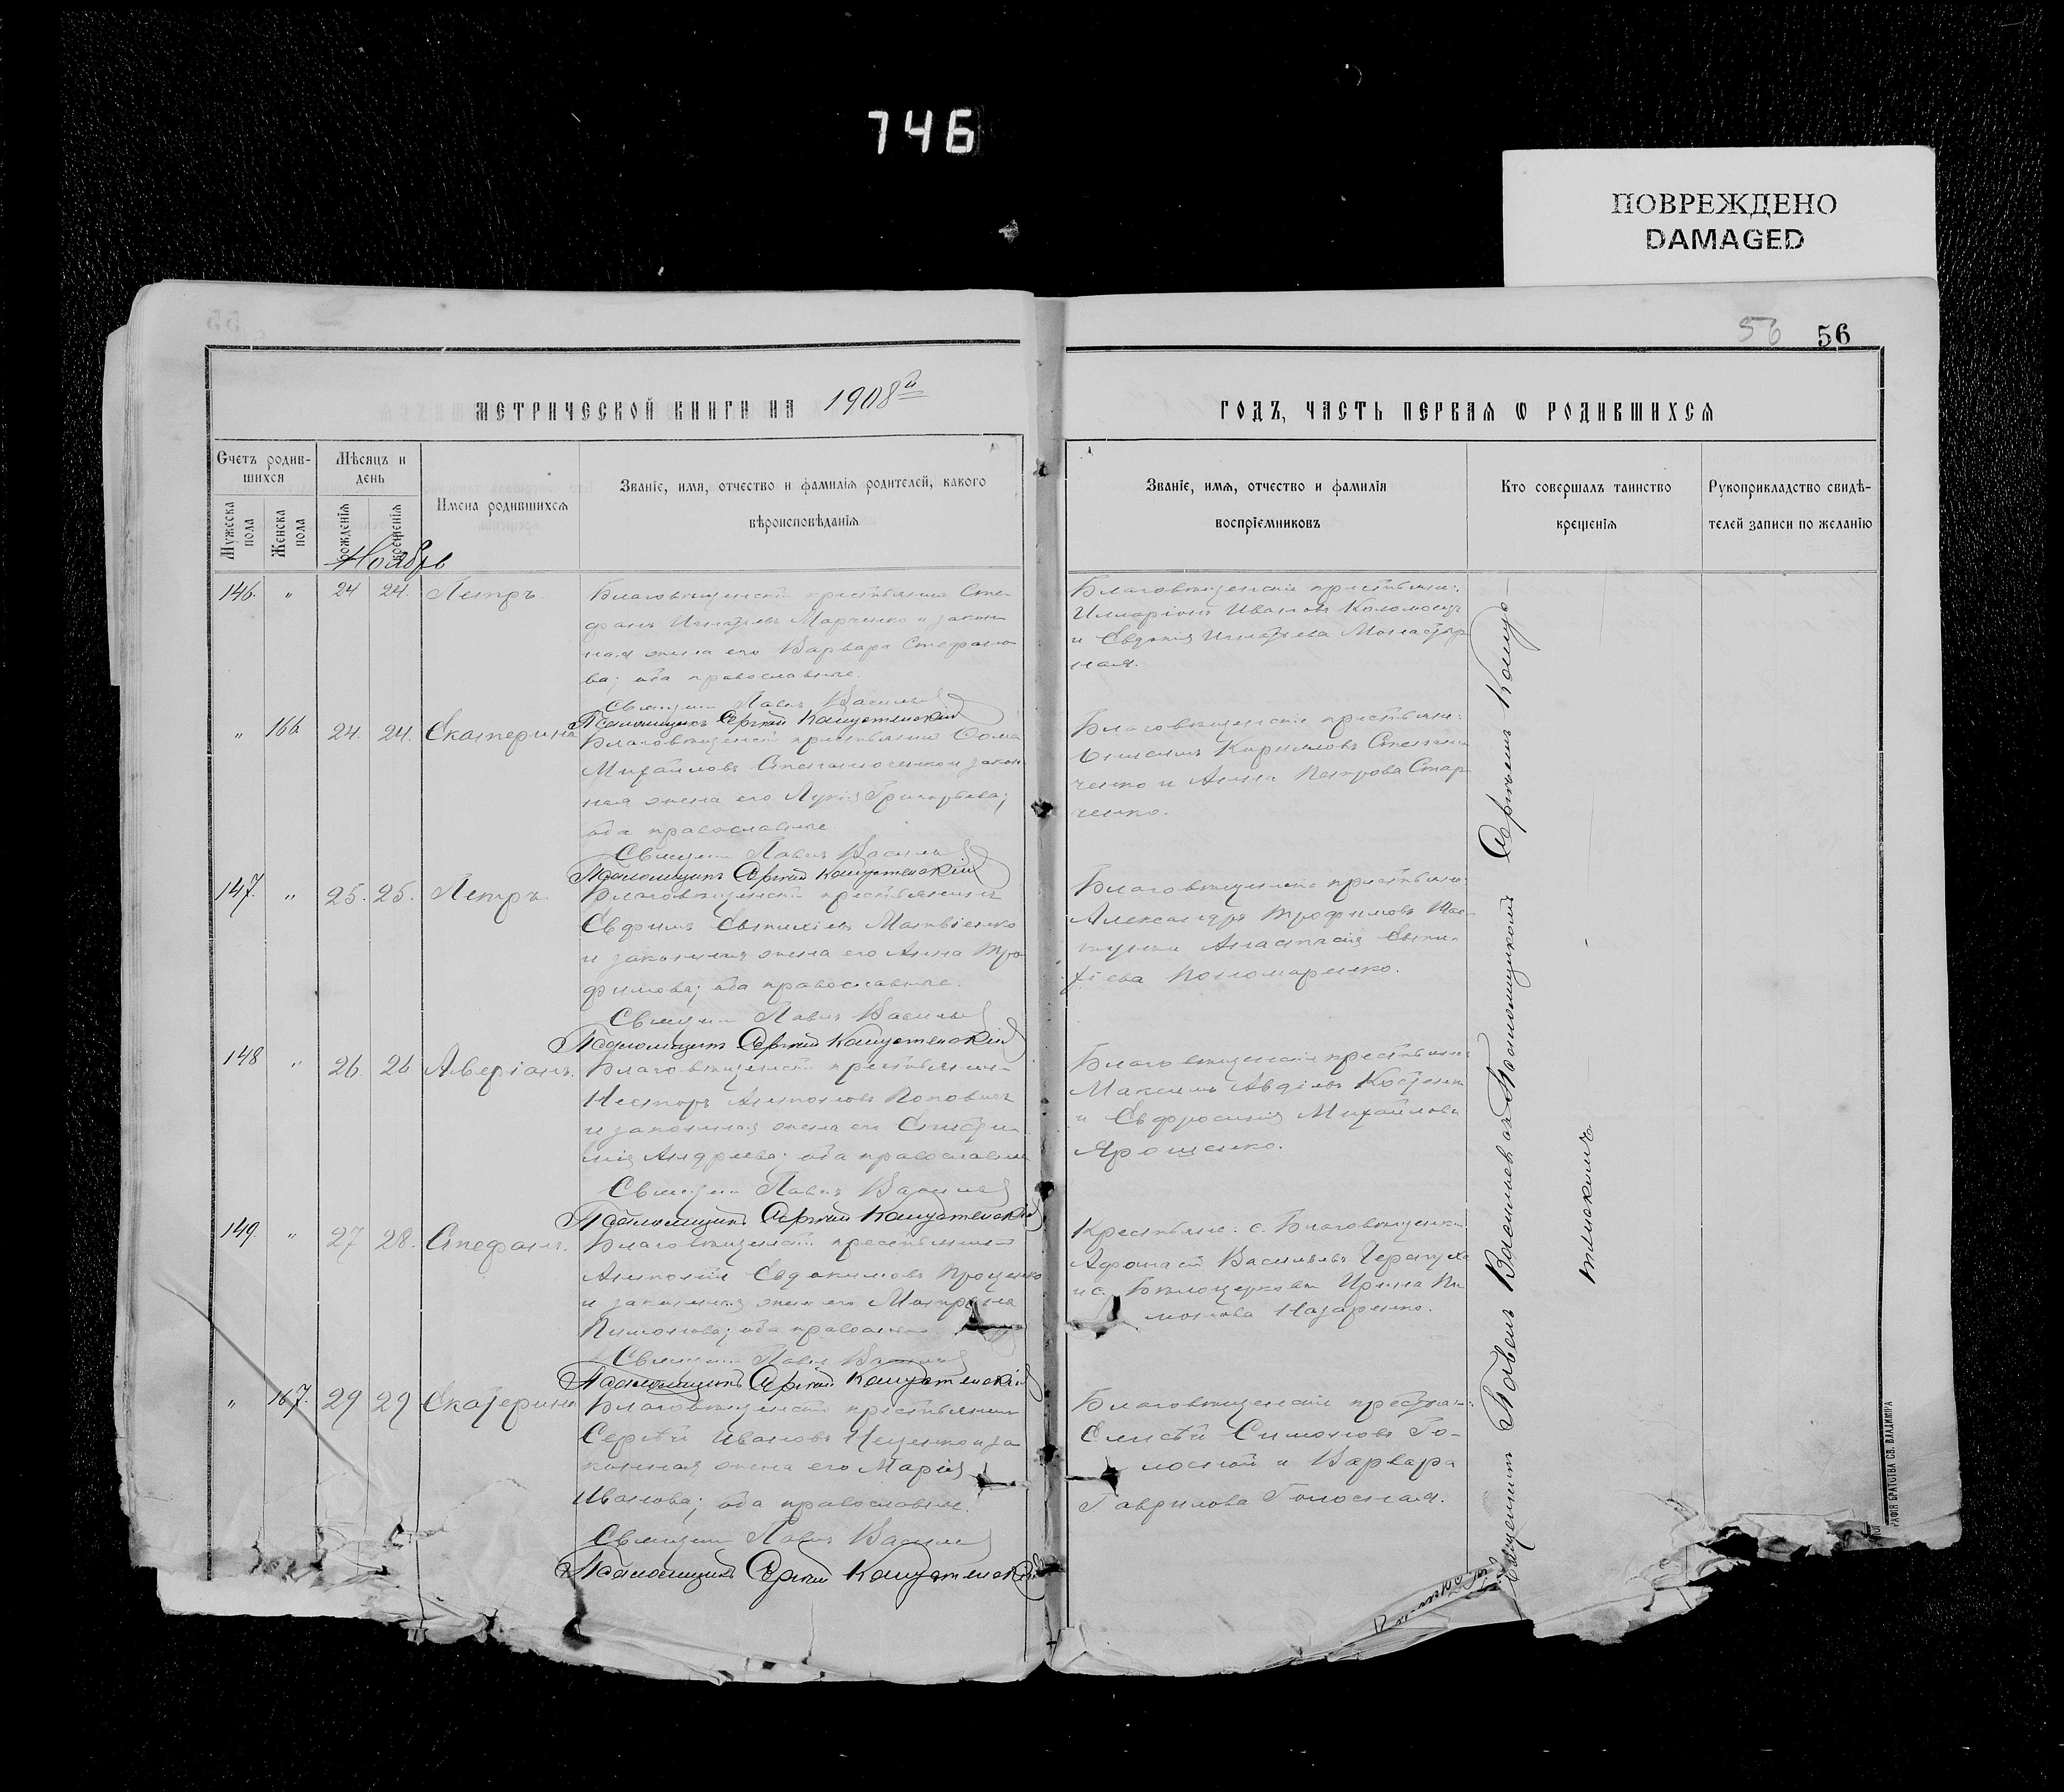 746
ПОВРЕЖДЕНО
DAMAGED
56 56
МЕТРИЧЕСКОЙ КНИГИ НА 1908й
ГОДЪ, ЧАСТЬ ПЕРВАЯ Ѡ РОДИВШИХСЯ
Счетъ родив-
шихся
Мужеска пола
Женска пола
Мѣсяцъ и
день
рожденія
крещенія
Имена родившихся
Званіе, имя, отчество и фамилія родителей, какого
вѣроисповѣданія
Званіе, имя, отчество и фамилія
воспріемниковъ
Кто совершалъ таинство
крещенія
Рукоприкладство свидѣ-
телей записи по желанію
Ноябрь
146. " 24 24. Петръ.
Благовѣщенскій крестьянинъ Сте-
фанъ Игнатьевъ Марченко и закон-
ная жена его Варвара Стефано-
ва; оба православные.
Священникъ Павелъ Васильев
Псаломщикъ Сергій Капустенскій
Благовѣщенскіе крестьяне:
Илларіонъ Ивановъ Коломоецъ
и Евдокія Игнатьева Монастыр
ная.
" 166 24. 24. Екатерина
Благовѣщенскій крестьянинъ Ѳома
Михайловъ Степанюченко и закон
ная жена его Лукія Григорьева;
оба православные
Священникъ Павелъ Васильев
Псаломщикъ Сергій Капустенскій
Благовѣщенскіе крестьяне:
Кирилловъ
ченко и Анна Петрова Стар
ченко.
147. " 25. 25. Петръ.
Благовѣщенскій крестьянинъ
Евфимъ Евтихіевъ Матвіенко
и законная жена его Анна Тро
фимова; оба православные.
Священникъ Павелъ Васильев
Псаломщикъ Сергій Капустенскій
Благовѣщенскіе крестьяне
Александръ Трофимовъ
Анастасія Евти-
хіева Пономаренко.
148 " 26. 26 Аверіанъ.
Благовѣщенскій крестьянинъ
Несторъ Антоновъ Поповичъ
и законная жена его Епистим
мія Андреева; оба православные
Священникъ Павелъ Васильев
Псаломщикъ Сергій Капустенскій
Благовѣщенскіе крестьяне
Максимъ Авдіевъ Костенко
и Евфросинія Михайлова
Ярошенко.
149. " 27 28. Стефанъ.
Благовѣщенскій крестьянинъ
Антоній Евдокимовъ Проценко
и законная жена его Матрона
Пимонова; оба православные
Священникъ Павелъ Васильев
Псаломщикъ Сергій Капустенскій
Крестьяне: с. Благовѣщенки
Афанасій Васильевъ Черапуха
и с. Бѣлоцерковки Ирина Пи
монова Назаренко.
" 167. 29 29 Екатерина
Благовѣщенскій крестьянинъ
Сергѣй Ивановъ Ищенко и за
конная жена его Марія
Иванова; оба православные.
Священникъ Павелъ Васильев
Псаломщикъ Сергій Капустенскій
Благовѣщенскіе крестьяне:
Елисѣй Симоновъ Го-
лосной и Варвара
Гаврилова Голосная.
Священникъ Павелъ Васильев съ Псаломщикомъ Сергѣемъ Капус-
тенскимъ
РАФІЯ БРАТСТВА СВ. ВЛАДИМІРА